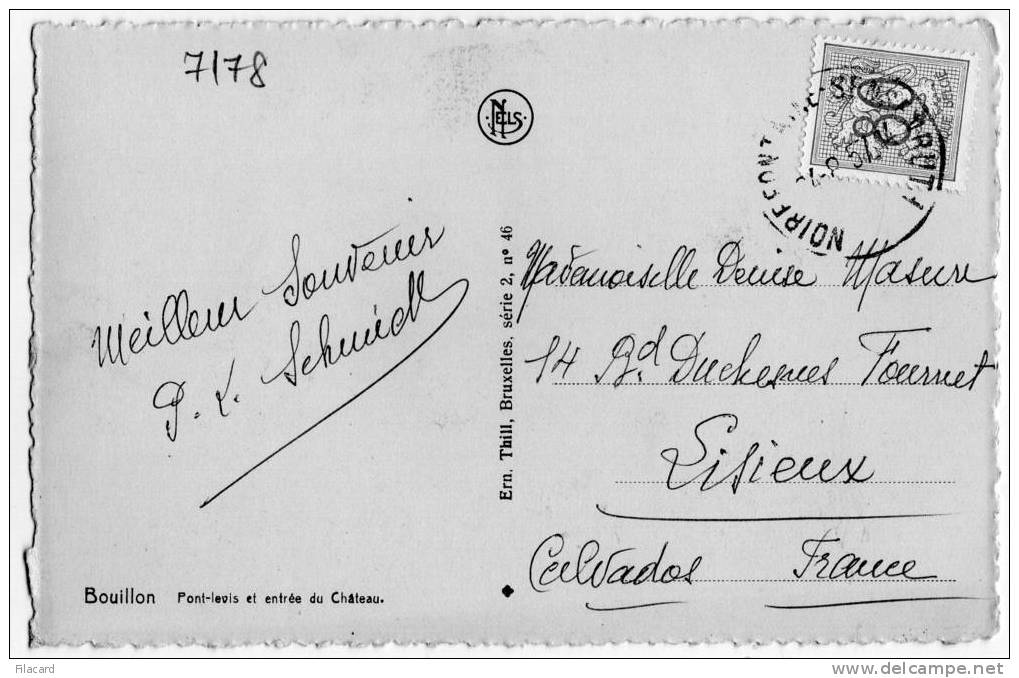 7/78
NELS
Meilleur Souvenir
P. L. Schmidt
Ern. Thill, Bruxelles, série 2, nº 46
Mademoiselle Denise Masure
14 Bd. Duchesnes Fournet
Lisieux
Calvados France
Bouillon Pont-levis et entrée du Château.
Filacard
www.delcampe.net